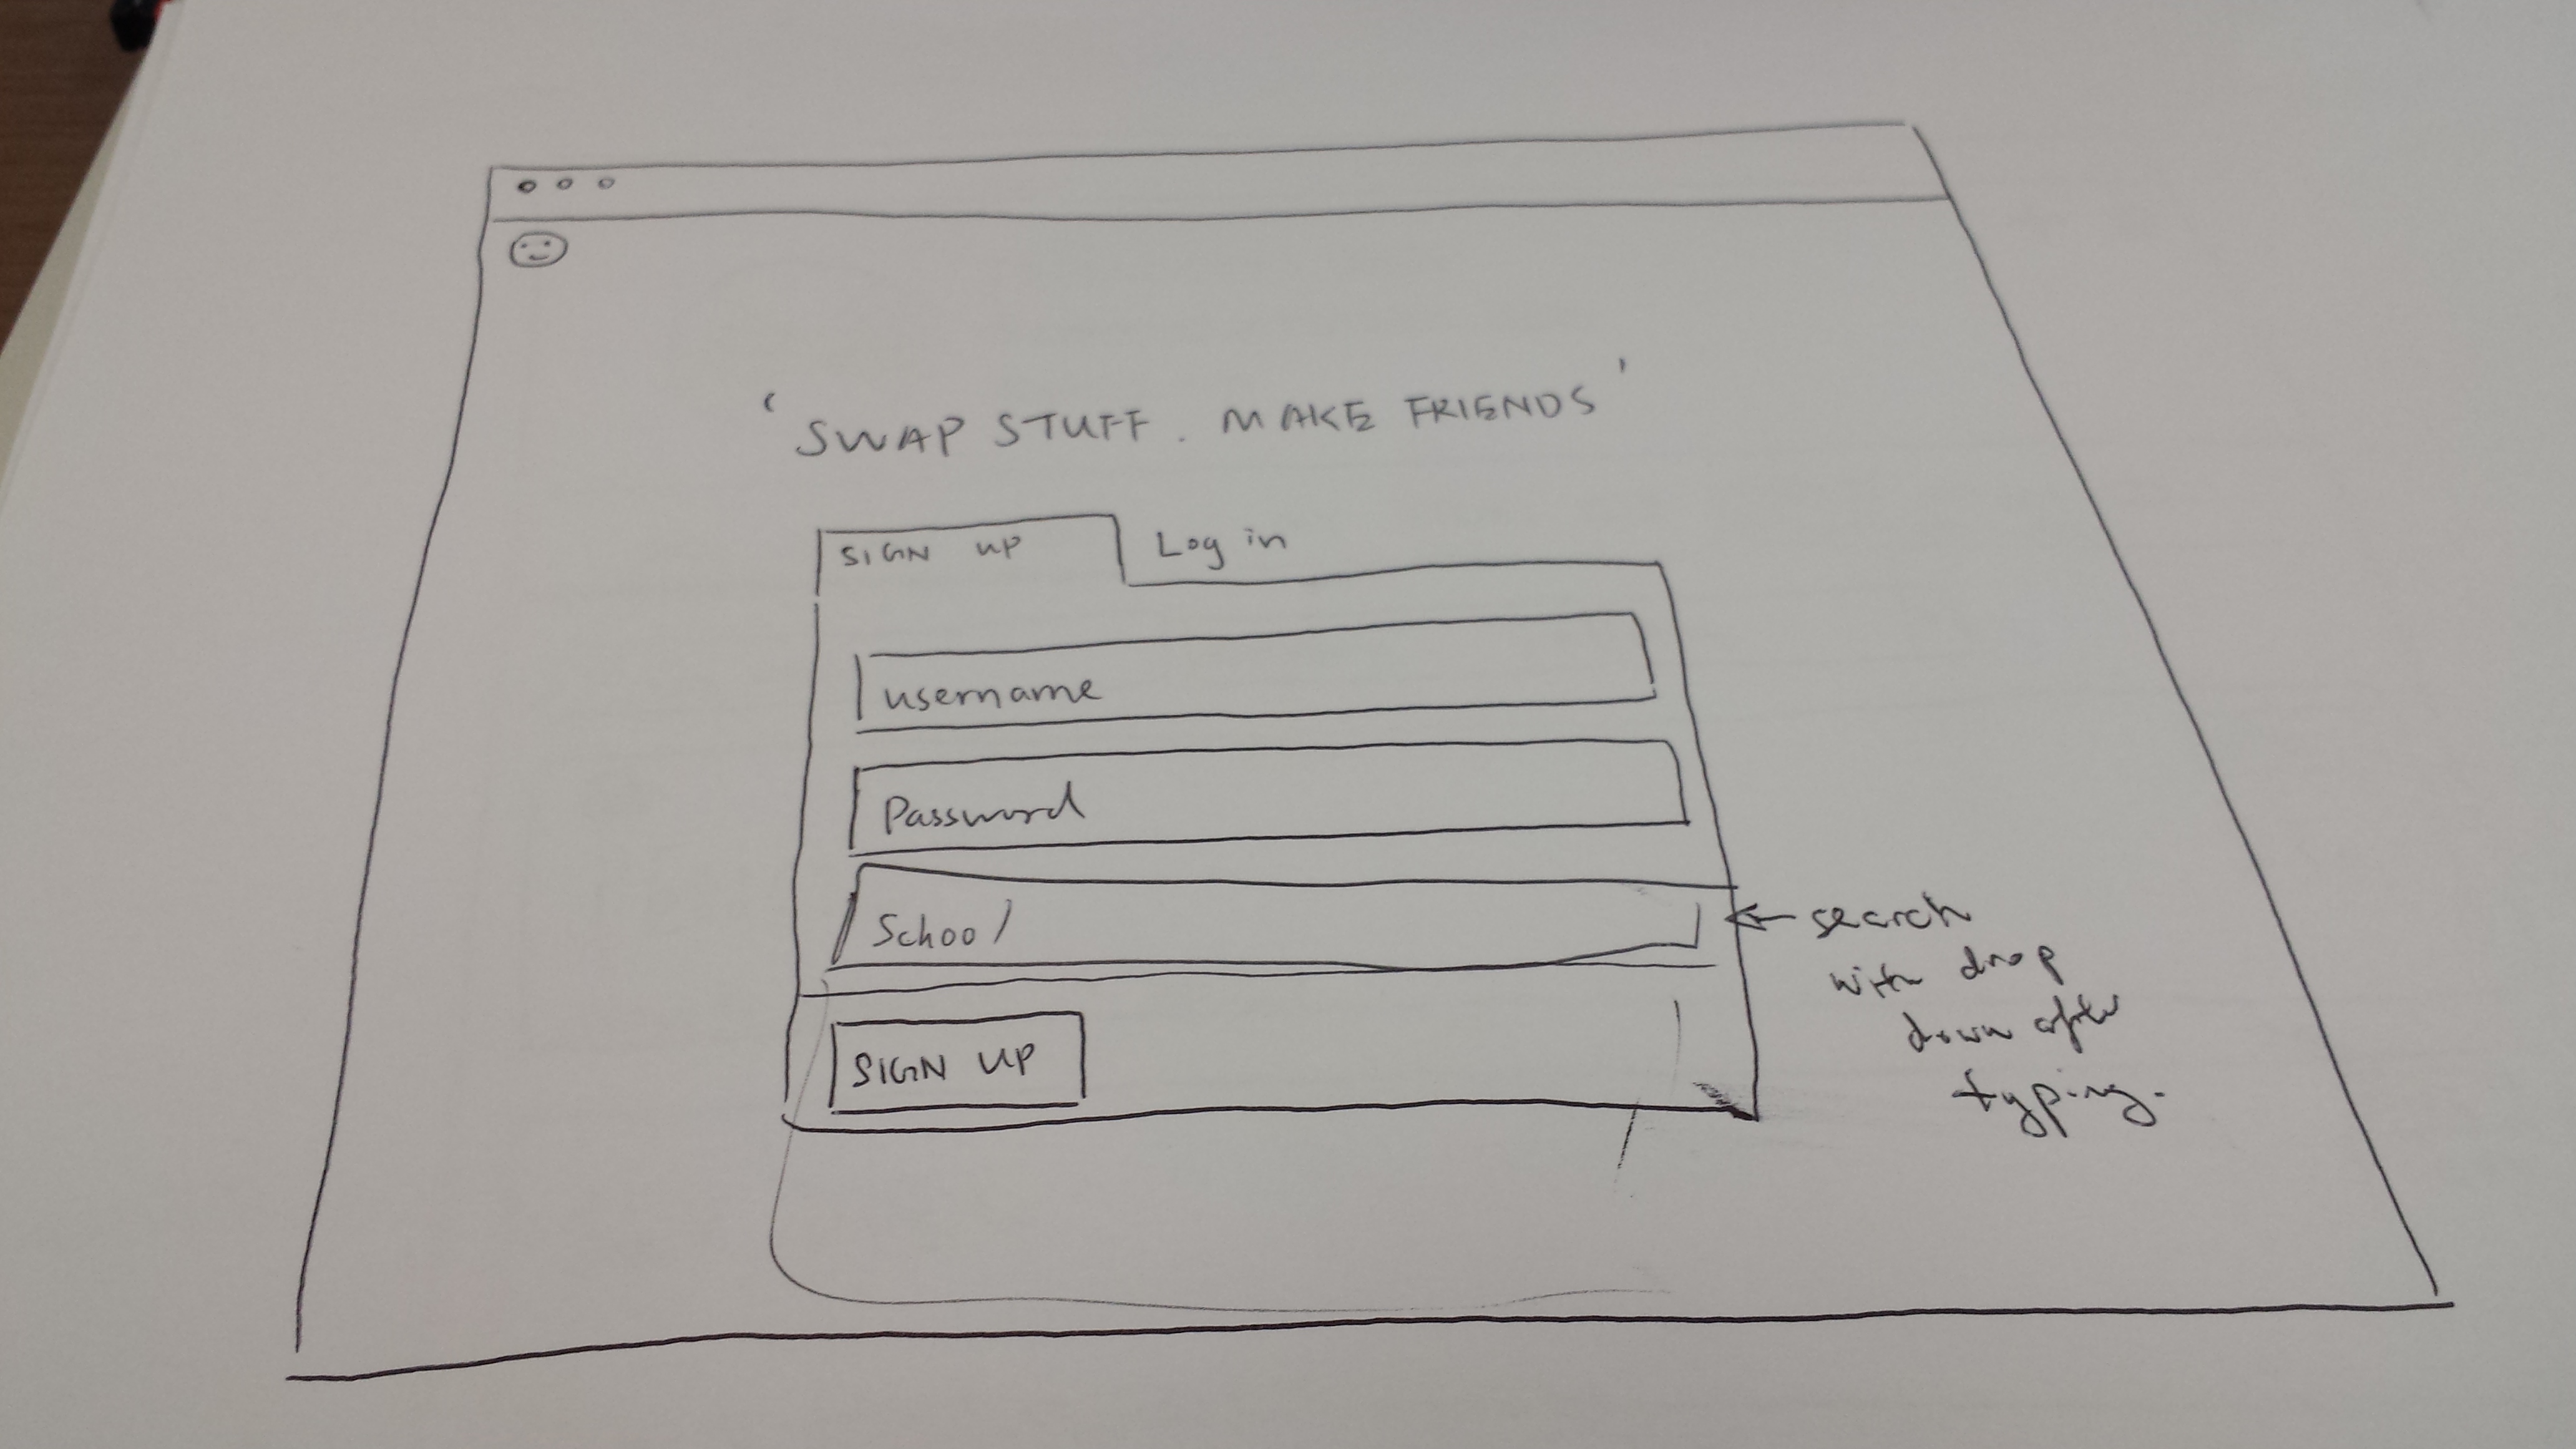 'SWAP STUFF. MAKE FRIENDS'
SIGN UP Log in
username
Password
School
search
with drop
down after
typing.
SIGN UP